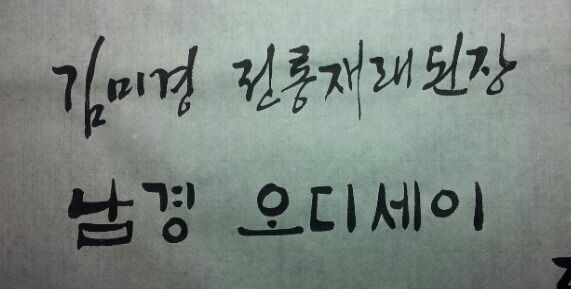 김미경 전통재래된장
남경 오디세이